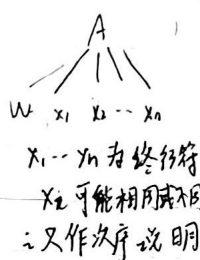 A
W x₁ x₂ ‥ xₙ
x₁ ‥ xₙ 为终结符
x₂ 可能相同或不同
i 只作次序说明